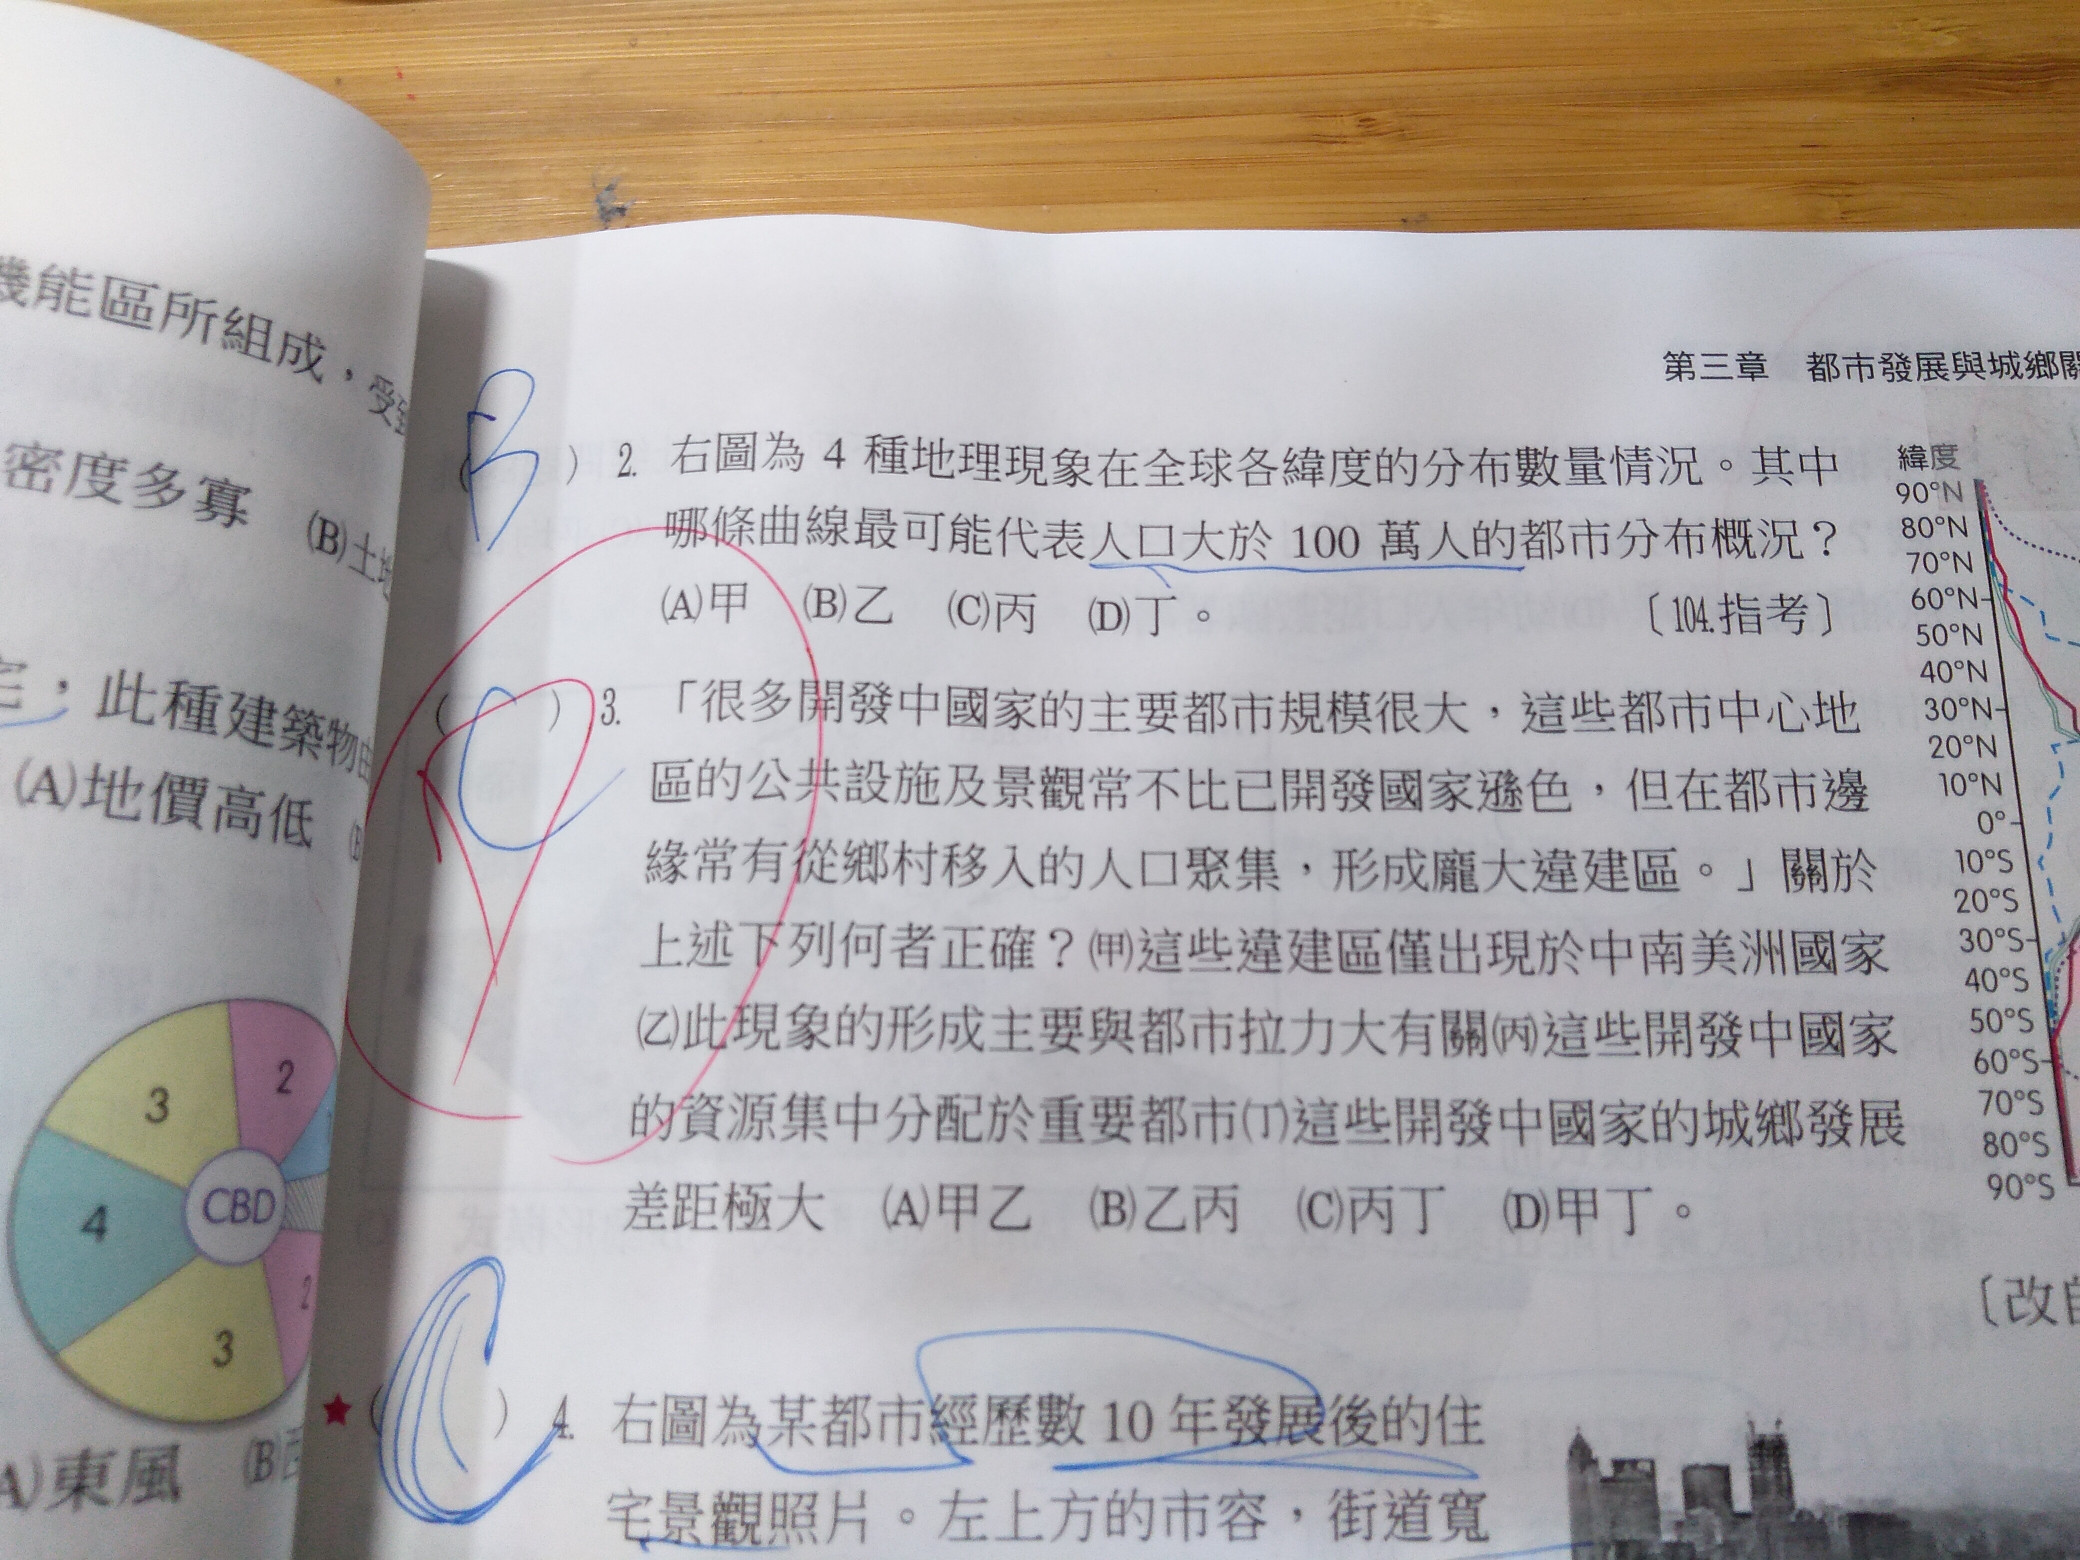 機能區所組成,受到
密度多寡 (B)土地
宅,此種建築物由
(A)地價高低
3
2
4
CBD
3
2
A)東風 (B)西
第三章 都市發展與城鄉關
B
( ) 2. 右圖為 4 種地理現象在全球各緯度的分布數量情況。其中
哪條曲線最可能代表人口大於 100 萬人的都市分布概況?
(A)甲 (B)乙 (C)丙 (D)丁。 〔104.指考〕
緯度
90°N
80°N
70°N
60°N
50°N
40°N
30°N
20°N
10°N
0°
10°S
20°S
30°S
40°S
50°S
60°S
70°S
80°S
90°S
C
( ) 3. 「很多開發中國家的主要都市規模很大,這些都市中心地
區的公共設施及景觀常不比已開發國家遜色,但在都市邊
緣常有從鄉村移入的人口聚集,形成龐大違建區。」關於
上述下列何者正確?(甲)這些違建區僅出現於中南美洲國家
(乙)此現象的形成主要與都市拉力大有關(丙)這些開發中國家
的資源集中分配於重要都市(丁)這些開發中國家的城鄉發展
差距極大 (A)甲乙 (B)乙丙 (C)丙丁 (D)甲丁。
〔改自
C
★( ) 4. 右圖為某都市經歷數 10 年發展後的住
宅景觀照片。左上方的市容,街道寬